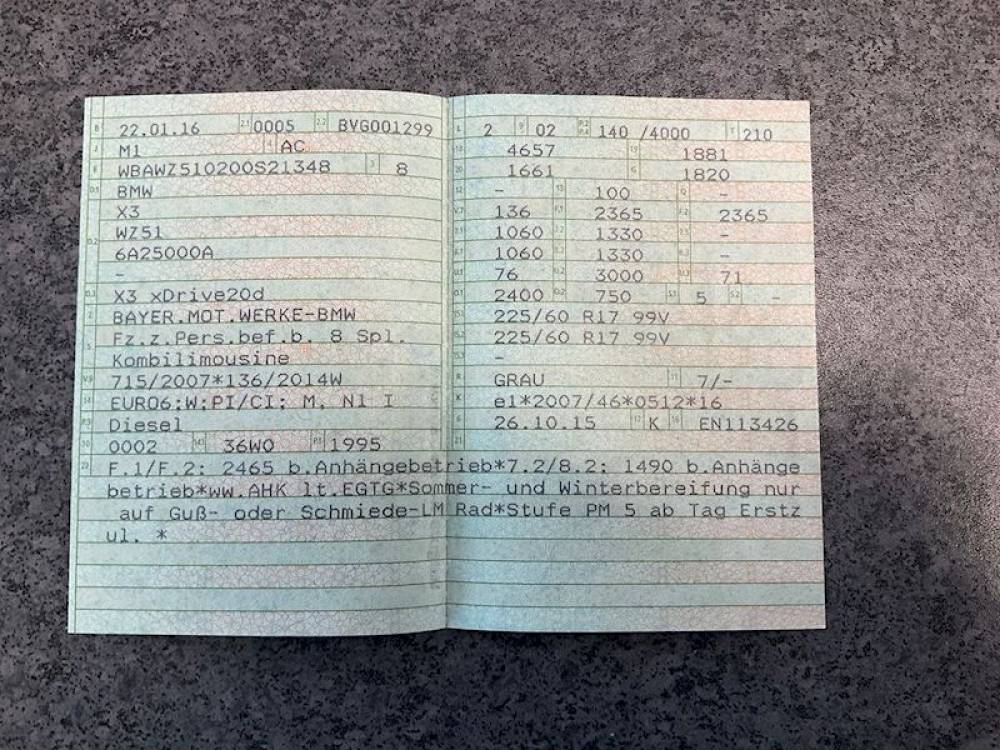 B 22.01.16 2.1 0005 2.2 BVG001299
J M1 4 AC
E WBAWZ510200S21348 3 8
D.1 BMW
X3
D.2 WZ51
6A25000A
-
D.3 X3 xDrive20d
2 BAYER.MOT.WERKE-BMW
5 Fz.z.Pers.bef.b. 8 Spl.
Kombilimousine
V.9 715/2007*136/2014W
14 EURO6;W;PI/CI; M, N1 I
P.3 Diesel
10 0002 14.1 36W0 P.1 1995
L 2 9 02 P.2 P.4 140 /4000 T 210
18 4657 19 1881
20 1661 G 1820
12 - 13 100 Q -
V.7 136 F.1 2365 F.2 2365
7.1 1060 7.2 1330 7.3 -
8.1 1060 8.2 1330 8.3 -
U.1 76 U.2 3000 U.3 71
O.1 2400 O.2 750 S.1 5 S.2 -
15.1 225/60 R17 99V
15.2 225/60 R17 99V
15.3 -
R GRAU 11 7/-
K e1*2007/46*0512*16
6 26.10.15 17 K 16 EN113426
21
22 F.1/F.2: 2465 b.Anhängebetrieb*7.2/8.2: 1490 b.Anhänge
betrieb*ww.AHK lt.EGTG*Sommer- und Winterbereifung nur
auf Guß- oder Schmiede-LM Rad*Stufe PM 5 ab Tag Erstz
ul. *